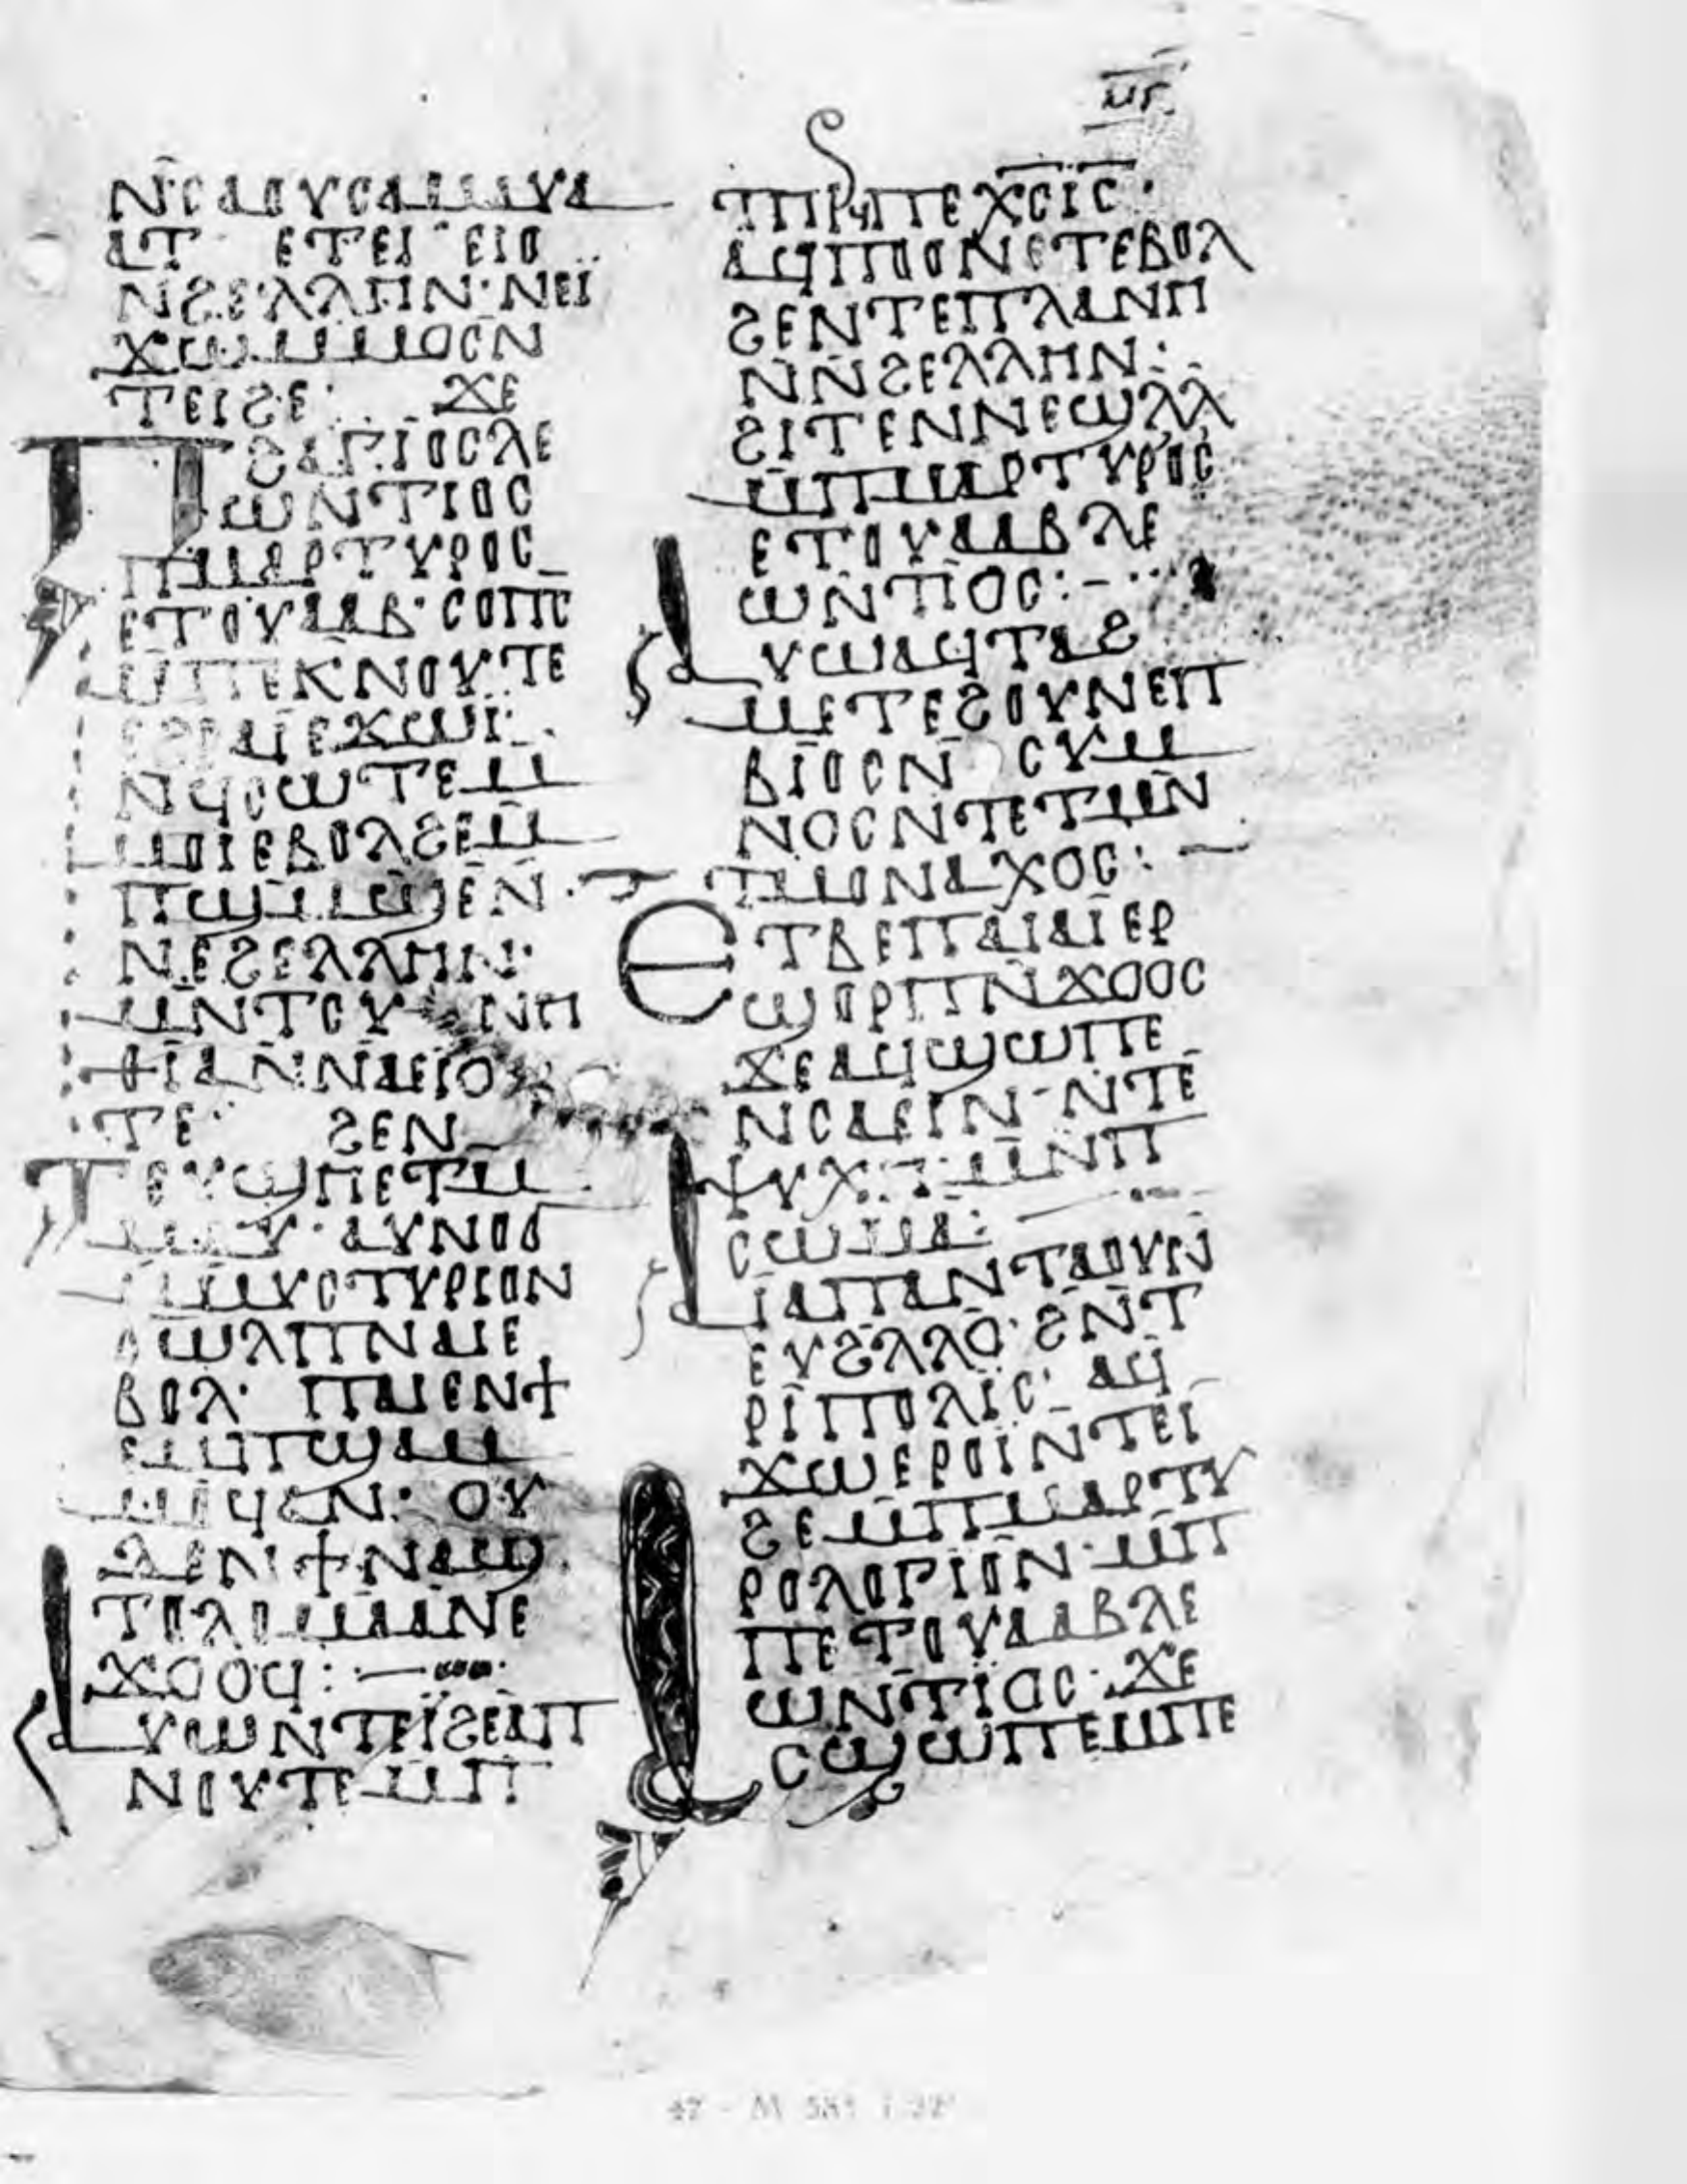 ⲙⲅ
ⲛ̄ⲥⲁⲟⲩⲥⲁⲙⲙⲩⲁ
ⲁⲧ ⲉⲧⲉⲓ ⲉⲓⲟ
ⲛϩⲉⲗⲗⲏⲛ· ⲛⲉⲓ̈
ϫⲱⲙⲙⲟⲥⲛ
ⲧⲉⲓϩⲉ: ϫⲉ
ⲡϩⲁⲅⲓⲟⲥⲗⲉ
ⲱⲛⲧⲓⲟⲥ
ⲡⲙⲁⲣⲧⲩⲣⲟⲥ
ⲉⲧⲟⲩⲁⲁⲃ· ⲥⲟⲡⲥ
ⲙ̄ⲡⲉⲕⲛⲟⲩⲧⲉ
ⲉϩⲣⲁⲓ̈ⲉϫⲱⲓ̈·
ⲛϥⲥⲱⲧⲉⲙ̄
ⲙⲟⲓⲉⲃⲟⲗϩⲉⲙ̄
ⲡϣⲙ̄ϣⲉⲛ·
ⲛⲉϩⲉⲗⲗⲏⲛ·
ⲙ̄ⲛⲧⲟⲩ ⲛⲏ
ϯⲓⲁⲛ̄ⲛⲁⲉⲓⲟ
ⲧⲉ· ϩⲉⲛ
ⲧⲉⲩϣⲏⲉⲧⲙ̄
ⲙⲁⲩ· ⲁⲩⲛⲟϭ
ⲙ̄ⲙⲩⲥⲧⲩⲣⲓⲟⲛ
ϭⲱⲗⲡⲛⲁⲓⲉ
ⲃⲟⲗ· ⲡⲁⲓⲉⲛϯ
ⲉⲙⲡϣⲁⲙ
ⲙⲓϥⲁⲛ· ⲟⲩ
ⲗⲉⲛϯⲛⲁϣ
ⲧⲟⲗⲟⲙⲁⲁⲛⲉ
ϫⲟⲟϥ: —
ⲁⲩⲱⲛⲧⲉⲓ̈ϩⲉⲁⲡ
ⲛⲟⲩⲧⲉⲙ̄ⲡ
ⲙ̄ⲡⲣⲏⲡⲉϫⲟ̄ⲓ̄ⲥ̄·
ⲁϥⲡⲟⲟⲛⲉⲧⲉⲃⲟⲗ
ϩⲉⲛⲧⲉⲡⲗⲁⲛⲏ
ⲛ̄ⲛ̄ϩⲉⲗⲗⲏⲛ:
ϩⲓⲧⲉⲛⲛⲉϣⲗⲗ
ⲙ̄ⲡⲙⲁⲣⲧⲩⲣⲟⲥ
ⲉⲧⲟⲩⲁⲁⲃⲗⲉ
ⲱⲛ̄ⲧⲓⲟⲥ: –
ⲁⲩⲱⲁϥⲧⲁϩ
ⲙⲉⲧⲉϩⲟⲩⲛⲉⲡ
ⲃⲓ̈ⲟⲥⲛ̄ ⲥⲩⲙ
ⲛⲟⲥⲛⲧⲉⲧⲙⲛ̄
ⲧⲙⲟⲛⲁⲭⲟⲥ: —
ⲉⲧⲃⲉⲡⲁⲓ̈ⲁⲓ̈ⲉⲣ
ϣⲟⲣⲡⲛ̄ϫⲟⲟⲥ
ϫⲉⲁϥϣⲱⲡⲉ
ⲛⲥⲁⲉⲓⲛ· ⲛⲧⲉ
ⲧⲉⲯⲩⲭⲏ ⲙ̄ⲛⲡ
ⲥⲱⲙⲁ: —
ⲁⲓⲁⲡⲁⲛⲧⲁⲟⲩⲛ
ⲉⲩϩⲗⲗⲟ· ϩⲛ̄ⲧ
ⲣⲓ̈ⲡⲟⲗⲓ̈ⲥ· ⲁϥ
ϫⲱⲉⲣⲟⲓ̈ⲛⲧⲉⲓ
ϩⲉⲙ̄ⲡⲙⲁⲣⲧⲩ
ⲣⲟⲗⲟⲅⲓⲟⲛ· ⲙ̄ⲡ
ⲡⲉⲧⲟⲩⲁⲁⲃⲗⲉ
ⲱⲛⲧⲓⲟⲥ· ϫⲉ
ⲁⲥϣⲱⲡⲉⲙⲡⲉ